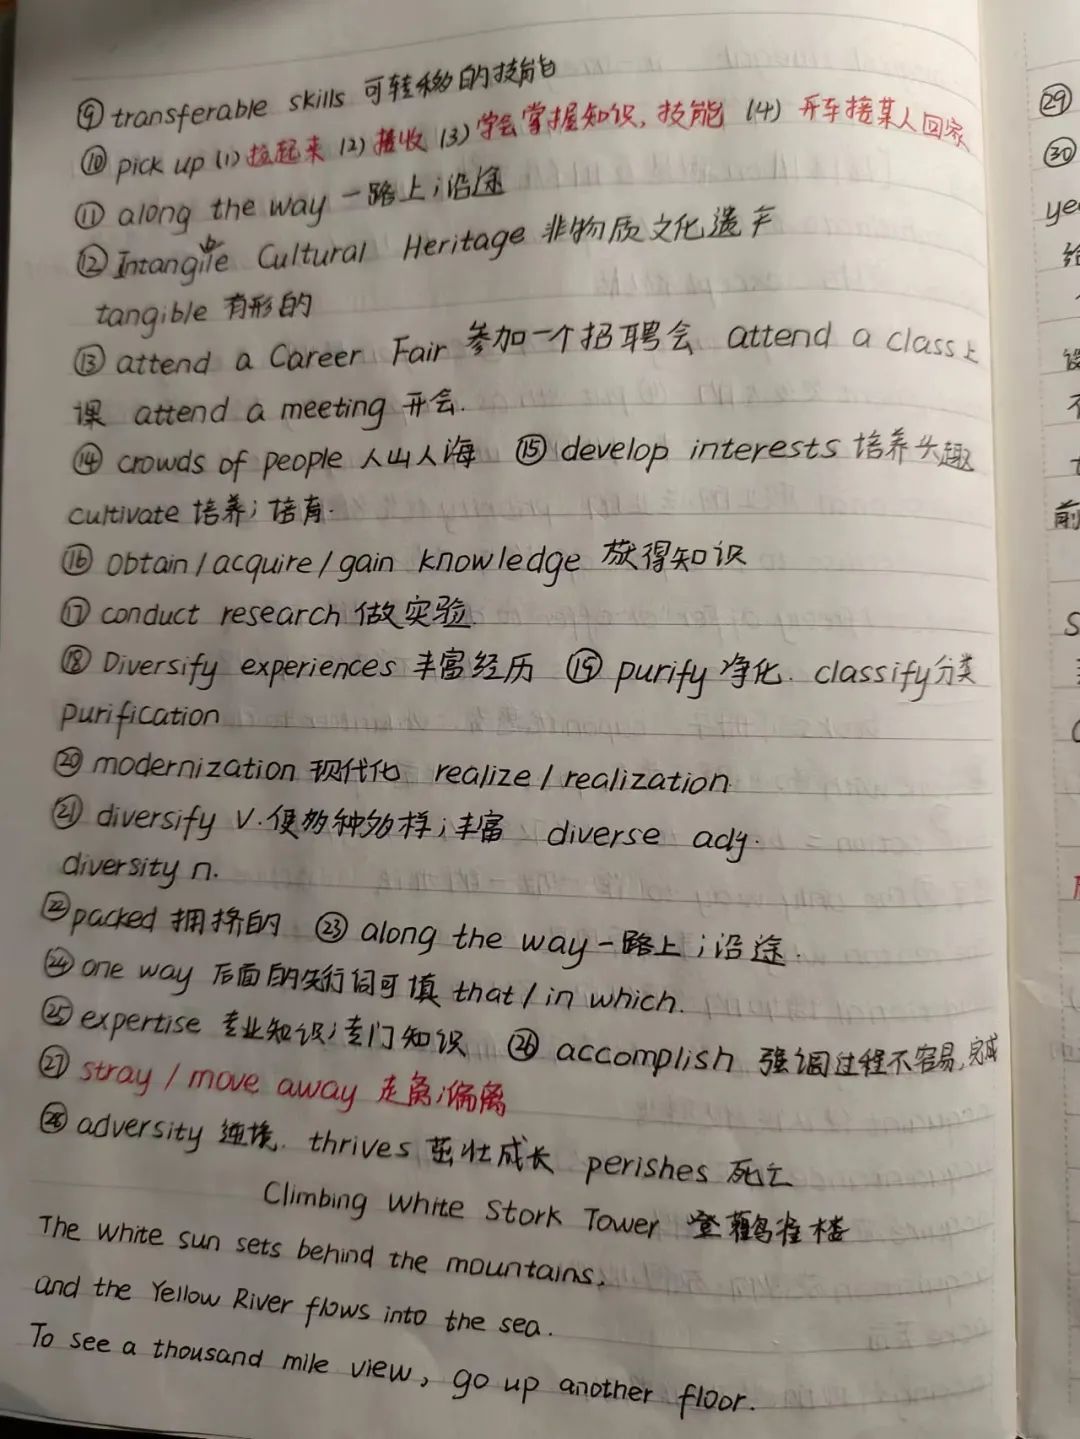 ⑨ transferable skills 可转移的技能
⑩ pick up (1) 捡起来 (2) 接收 (3) 学会掌握知识, 技能 (4) 开车接某人回家
⑪ along the way 一路上；沿途
⑫ Intangible Cultural Heritage 非物质文化遗产
tangible 有形的
⑬ attend a Career Fair 参加一个招聘会 attend a class 上
课 attend a meeting 开会.
⑭ crowds of people 人山人海 ⑮ develop interests 培养兴趣
cultivate 培养；培育.
⑯ obtain / acquire / gain knowledge 获得知识
⑰ conduct research 做实验.
⑱ Diversify experiences 丰富经历 ⑲ purify 净化. classify 分类
purification
⑳ modernization 现代化 realize / realization
㉑ diversify v. 使多种多样；丰富 diverse adj.
diversity n.
㉒ packed 拥挤的 ㉓ along the way 一路上；沿途.
㉔ one way 后面的先行词可填 that / in which.
㉕ expertise 专业知识；专门知识 ㉖ accomplish 强调过程不容易, 完成
㉗ stray / move away 走离；偏离
㉘ adversity 逆境. thrives 茁壮成长 perishes 死亡
Climbing White Stork Tower 登鹳雀楼
The white sun sets behind the mountains,
and the Yellow River flows into the sea.
To see a thousand mile view, go up another floor.
㉙
㉚
ye
给
前